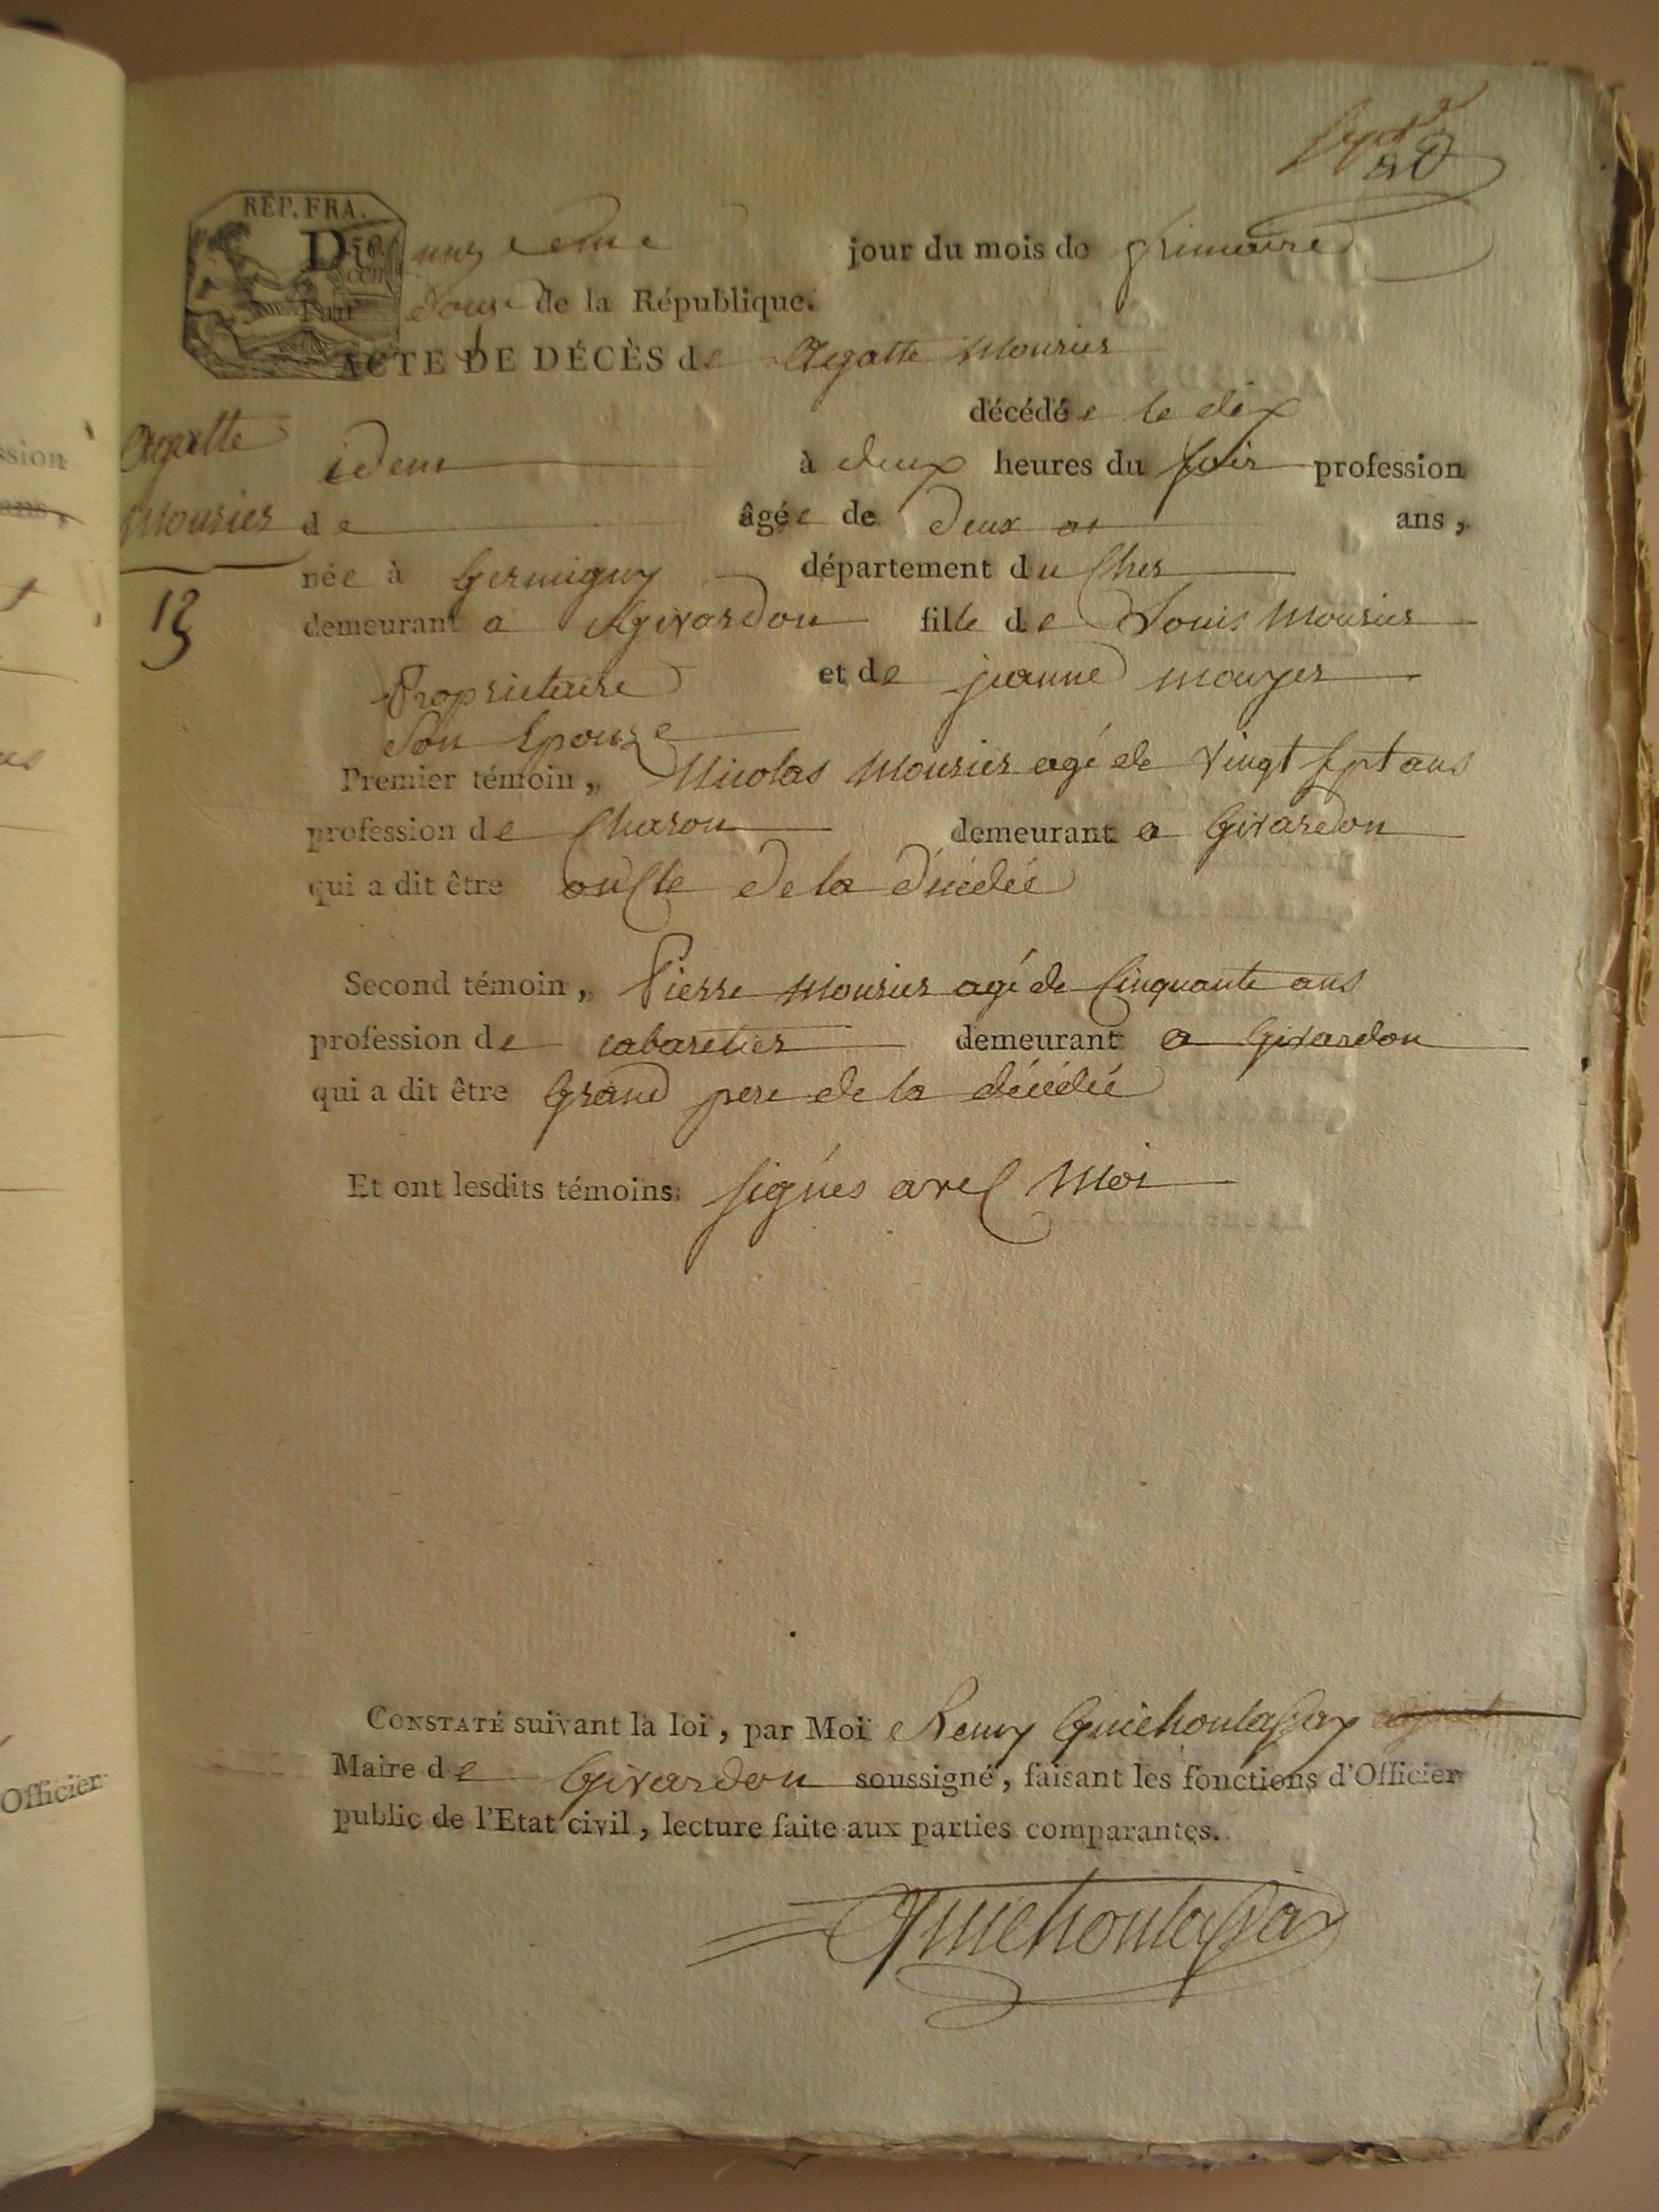 RÉP. FRA.
Du onzieme jour du mois de frimaire
douze de la République.
ACTE DE DÉCÈS de Agatte Mousier
décédée le dix
Agatte
Mousier
13
idem à deux heures du soir profession
de âgée de deux ans,
née à Germigny département du Cher
demeurant a Givardon fille de Louis Mousier
Proprietaire et de jeanne mauger
Son Epouze
Premier témoin, Nicolas Mousier agé de vingt sept ans
profession de Charon demeurant a Givardon
qui a dit être oncle de la décédée
Second témoin, Pierre Mousier agé de Cinquante ans
profession de cabaretier demeurant a Givardon
qui a dit être Grand pere de la décédée
Et ont lesdits témoins signés avec Moi
CONSTATÉ suivant la loi, par Moi Remy
Maire de Givardon soussigné, faisant les fonctions d'Officier
public de l'Etat civil, lecture faite aux parties comparantes.
Officier